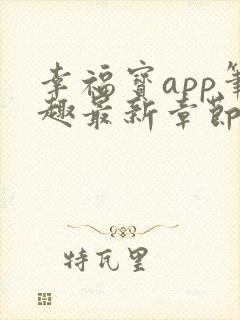 幸福宝app笔
趣最新章節
特瓦里